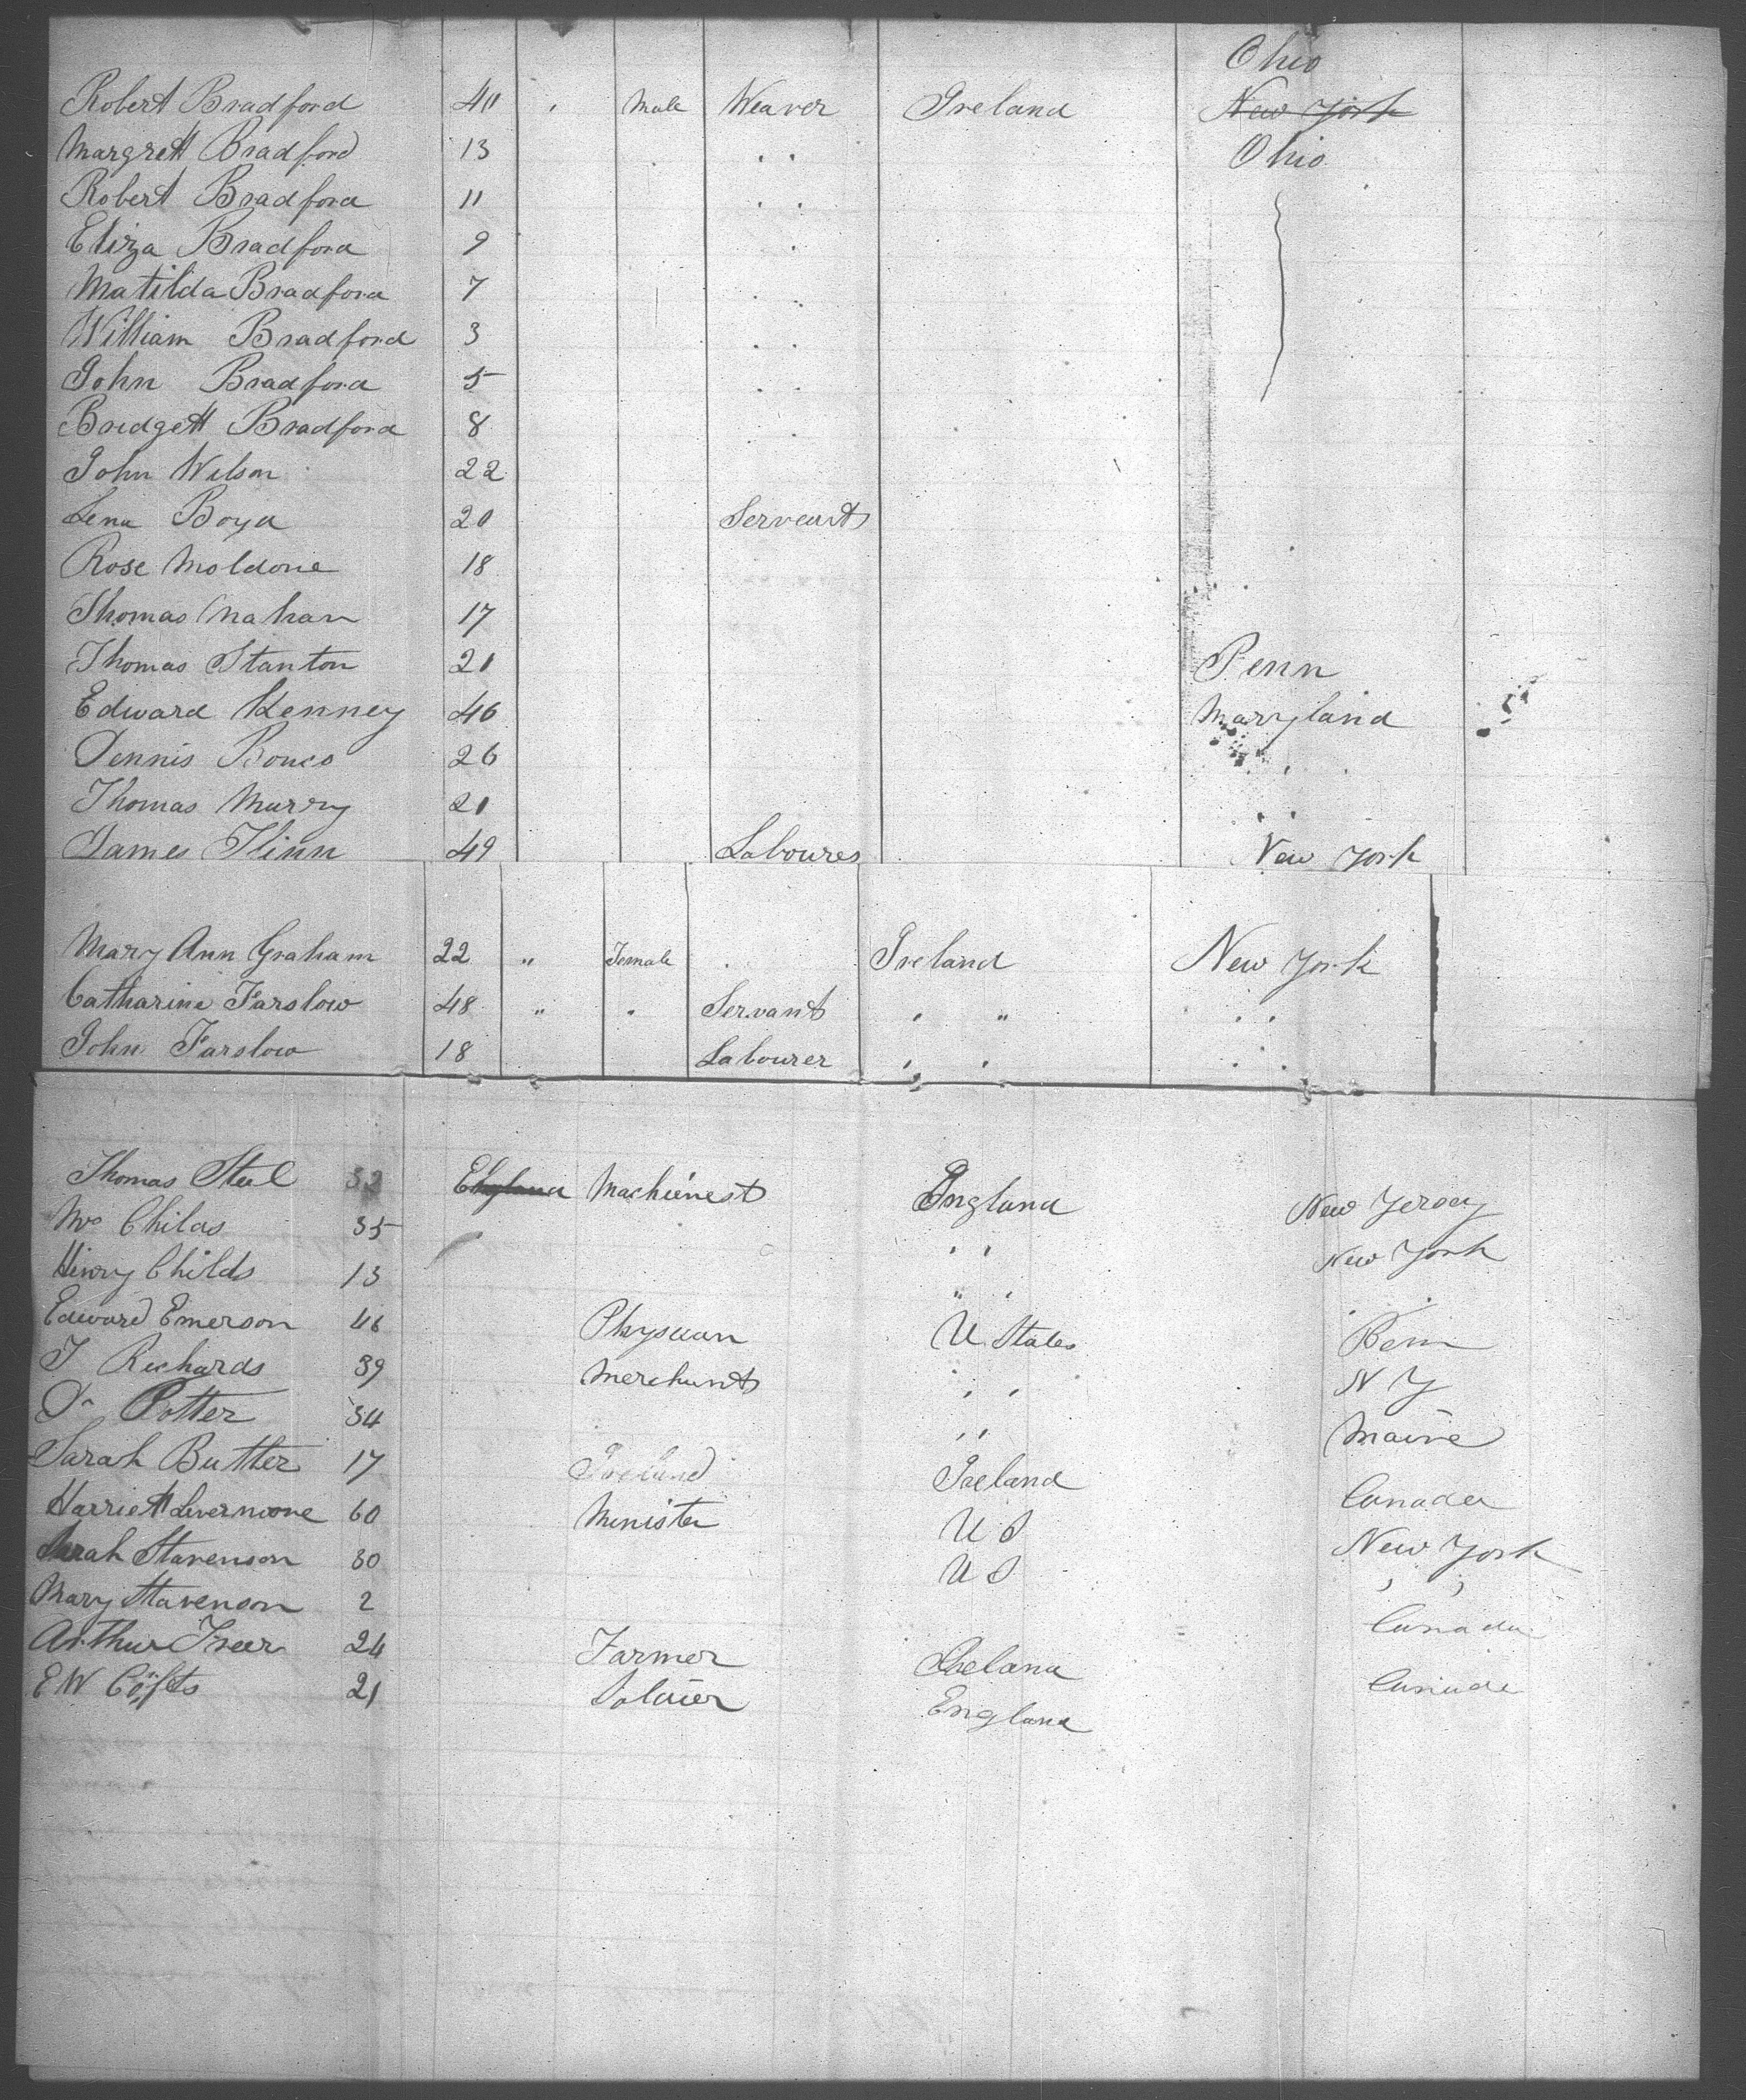 Ohio
Robert Bradford 40 " Male Weaver Ireland New York
Margrett Bradford 13 " " Ohio
Robert Bradford 11 " "
Eliza Bradford 9 "
Matilda Bradford 7 " "
William Bradford 3 " "
John Bradford 5 " "
Bridgett Bradford 8 " "
John Wilson 22
Lena Boyd 20 Servant
Rose Moldone 18
Thomas Mahan 17
Thomas Stanton 21 Penn
Edward Kenney 46 Maryland
Dennis 26 "
Thomas Murry 21 " "
James Flinn 49 Labourer New York
Mary Ann Graham 22 " Female Ireland New York
Catharine Farslow 48 " " Servant " " " "
John Farslow 18 Labourer " " " "
Thomas Steel 32 England Machienest England New Jersey
Mrs Childs 35 " " New York
Henry Childs 13 " " " "
Edward Emerson 46 Physician U States Penn
J Richards 39 Merchant " " N Y
Dr Potter 34 " " Maine
Sarah Buttler 17 Ireland Ireland Canada
Harriett Livermoore 60 Minister U S New York
Sarah Stavenson 30 U S " "
Mary Stavenson 2 Canada
Arthur Freer 24 Farmer Ireland Canada
E W 21 Soldier England